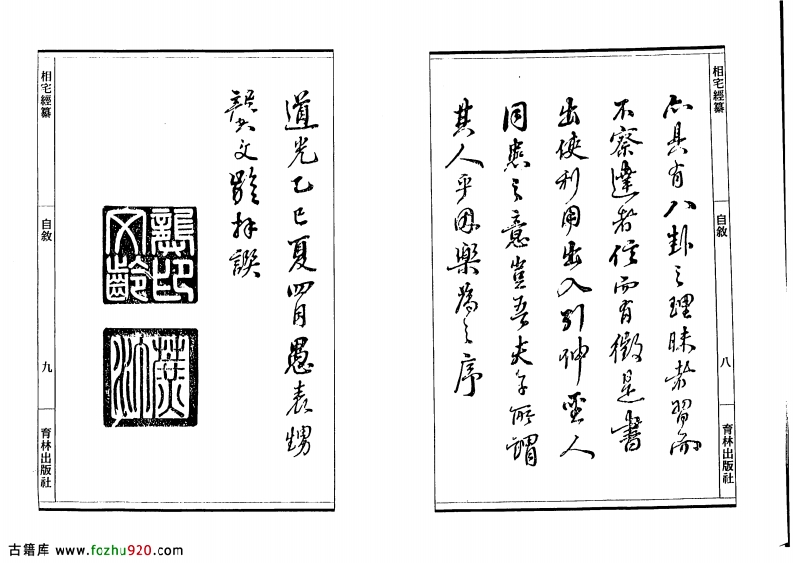 相宅經纂
自敘
八
育林出版社
亦具有八卦之理昧者習而
不察達者信而有徵是書
出使利用出入引伸聖人
同患之意豈吾夫子所謂
其人乎因樂為之序
相宅經纂
自敘
九
育林出版社
道光乙巳夏四月愚表甥
龔文齡拜譔
龔印
文齡
古籍库 www.fozhu920.com